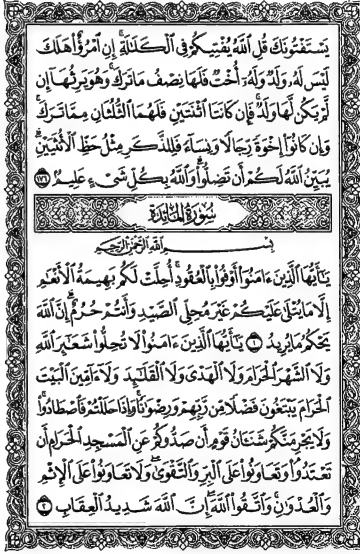 يَسْتَفْتُونَكَ قُلِ ٱللَّهُ يُفْتِيكُمْ فِي ٱلْكَلَٰلَةِ ۚ إِنِ ٱمْرُؤٌا۟ هَلَكَ
لَيْسَ لَهُۥ وَلَدٌ وَلَهُۥٓ أُخْتٌ فَلَهَا نِصْفُ مَا تَرَكَ ۚ وَهُوَ يَرِثُهَآ إِن
لَّمْ يَكُن لَّهَا وَلَدٌ ۚ فَإِن كَانَتَا ٱثْنَتَيْنِ فَلَهُمَا ٱلثُّلُثَانِ مِمَّا تَرَكَ ۚ
وَإِن كَانُوٓا۟ إِخْوَةً رِّجَالًا وَنِسَآءً فَلِلذَّكَرِ مِثْلُ حَظِّ ٱلْأُنثَيَيْنِ ۗ
يُبَيِّنُ ٱللَّهُ لَكُمْ أَن تَضِلُّوا۟ ۗ وَٱللَّهُ بِكُلِّ شَيْءٍ عَلِيمٌۢ ١٧٦
سُورَةُ المَائِدَة
بِسْمِ ٱللَّهِ ٱلرَّحْمَٰنِ ٱلرَّحِيمِ
يَٰٓأَيُّهَا ٱلَّذِينَ ءَامَنُوٓا۟ أَوْفُوا۟ بِٱلْعُقُودِ ۚ أُحِلَّتْ لَكُم بَهِيمَةُ ٱلْأَنْعَٰمِ
إِلَّا مَا يُتْلَىٰ عَلَيْكُمْ غَيْرَ مُحِلِّي ٱلصَّيْدِ وَأَنتُمْ حُرُمٌ ۗ إِنَّ ٱللَّهَ
يَحْكُمُ مَا يُرِيدُ ١ يَٰٓأَيُّهَا ٱلَّذِينَ ءَامَنُوا۟ لَا تُحِلُّوا۟ شَعَٰٓئِرَ ٱللَّهِ
وَلَا ٱلشَّهْرَ ٱلْحَرَامَ وَلَا ٱلْهَدْيَ وَلَا ٱلْقَلَٰٓئِدَ وَلَآ ءَآمِّينَ ٱلْبَيْتَ
ٱلْحَرَامَ يَبْتَغُونَ فَضْلًا مِّن رَّبِّهِمْ وَرِضْوَٰنًا ۚ وَإِذَا حَلَلْتُمْ فَٱصْطَادُوا۟ ۚ
وَلَا يَجْرِمَنَّكُمْ شَنَـَٔانُ قَوْمٍ أَن صَدُّوكُمْ عَنِ ٱلْمَسْجِدِ ٱلْحَرَامِ أَن
تَعْتَدُوا۟ ۘ وَتَعَاوَنُوا۟ عَلَى ٱلْبِرِّ وَٱلتَّقْوَىٰ ۖ وَلَا تَعَاوَنُوا۟ عَلَى ٱلْإِثْمِ
وَٱلْعُدْوَٰنِ ۚ وَٱتَّقُوا۟ ٱللَّهَ ۖ إِنَّ ٱللَّهَ شَدِيدُ ٱلْعِقَابِ ٢